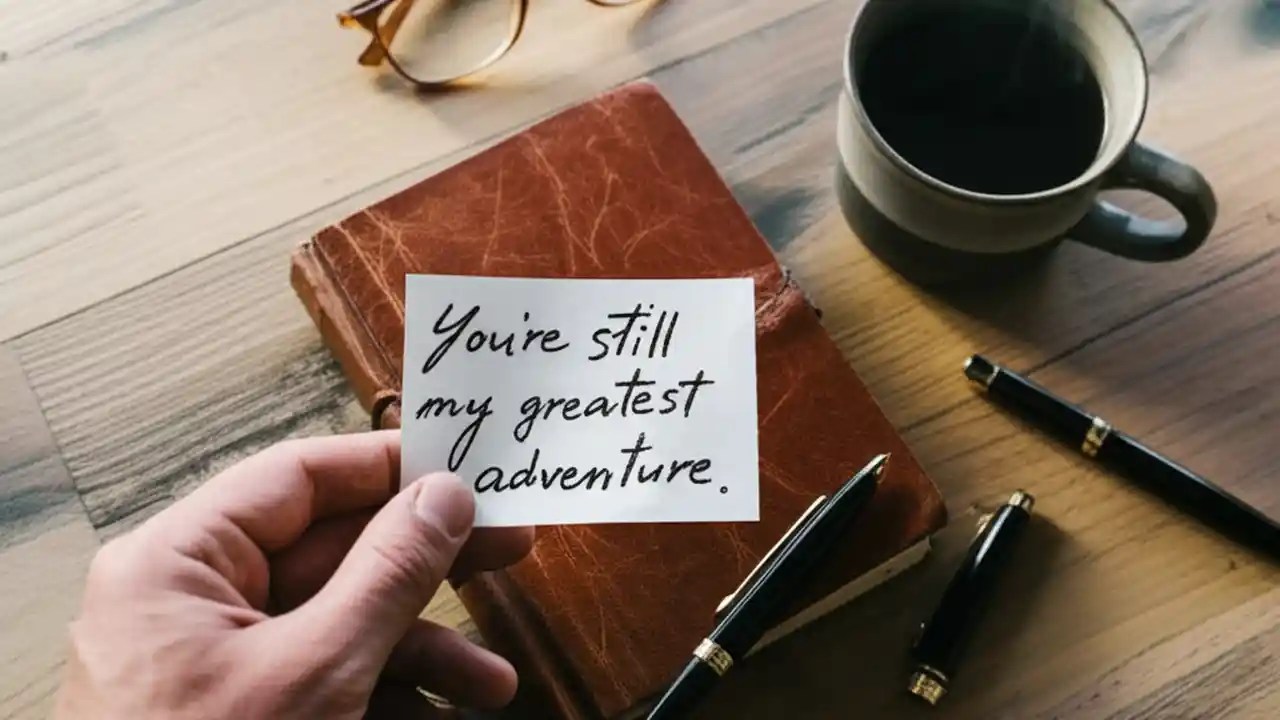 You're still
my greatest
adventure.